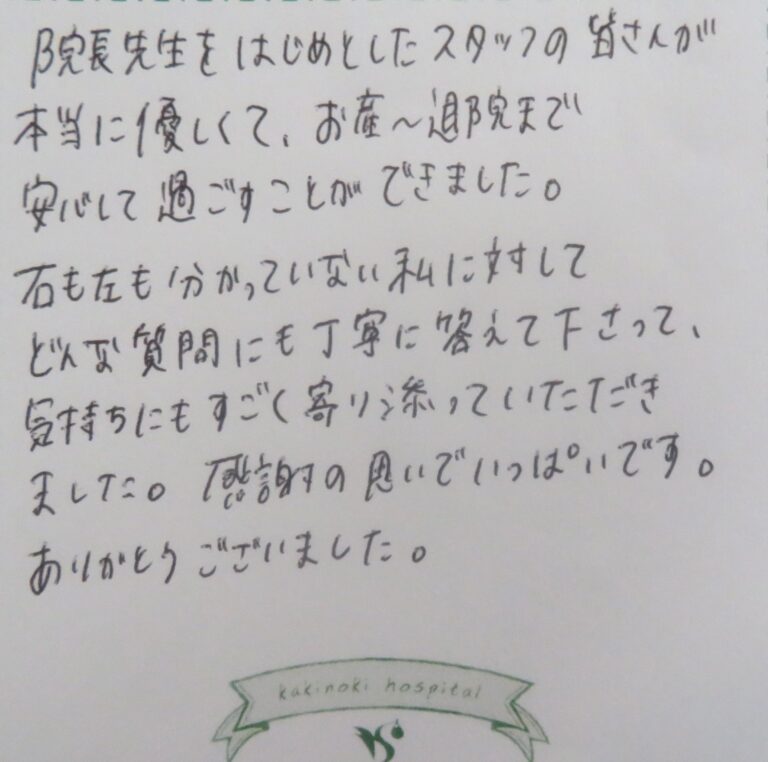 院長先生をはじめとしたスタッフの皆さんが
本当に優しくて、お産〜退院まで
安心して過ごすことができました。
右も左も分かっていない私に対して
どんな質問にも丁寧に答えて下さって、
気持ちにもすごく寄り添っていただき
ました。感謝の思いでいっぱいです。
ありがとうございました。
kakinoki hospital